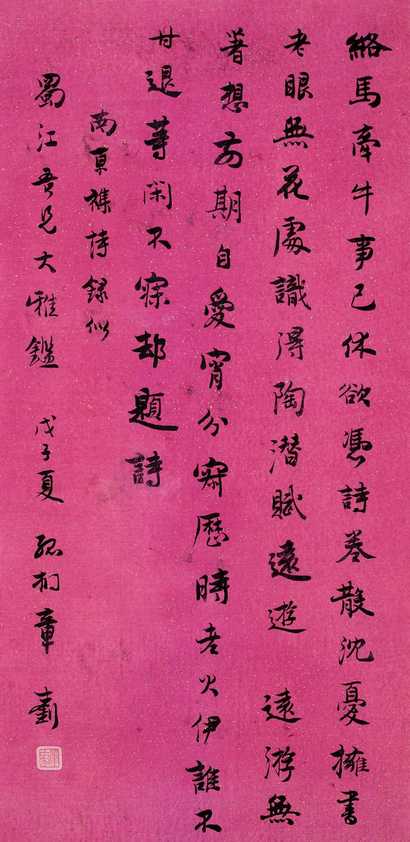 絡馬牽牛事已休欲憑詩卷散沈憂擁書
老眼無花處識得陶潛賦遠遊 遠游無
著想期自愛宵分歷時老火伊誰不
甘退等閑不寐却題詩
南夏襍詩錄似
蜀江吾兄大雅鑑 戊子夏 孤桐章士釗